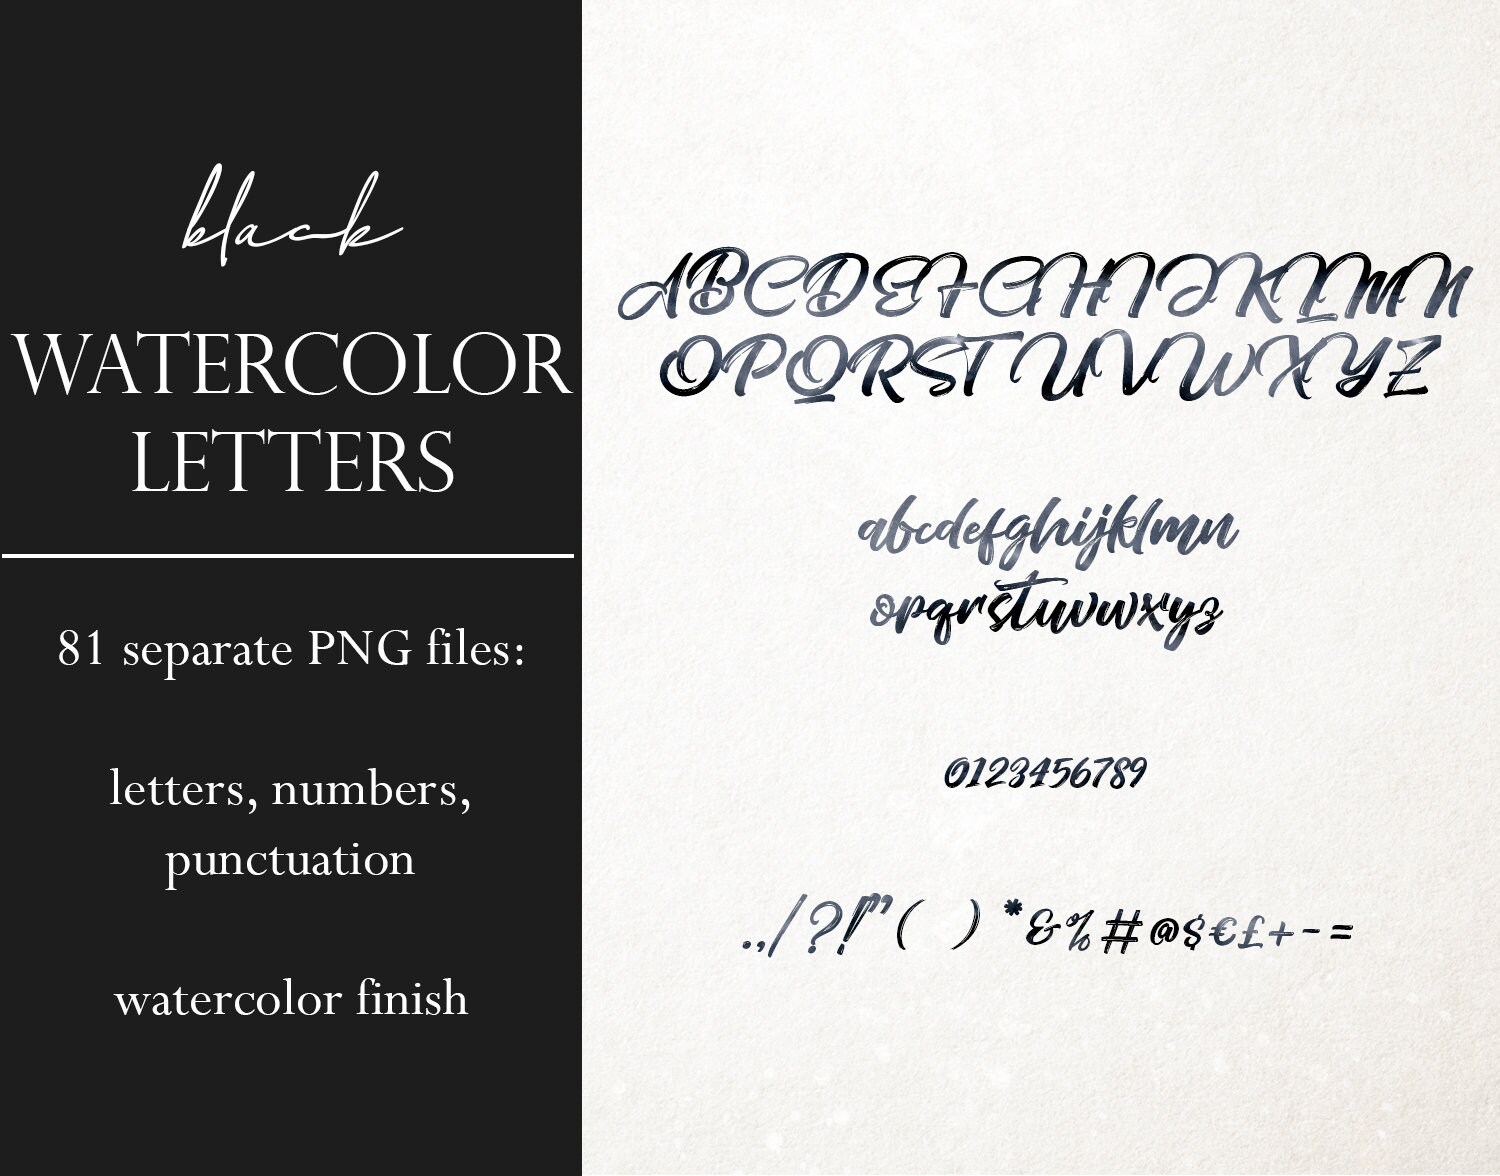 black
WATERCOLOR
LETTERS
81 separate PNG files:
letters, numbers,
punctuation
watercolor finish
ABCDEFGHIJKLMN
OPQRSTUVWXYZ
abcdefghijklmn
opqrstuvwxyz
0123456789
.,/?!”( )*&%#@$€£+-=